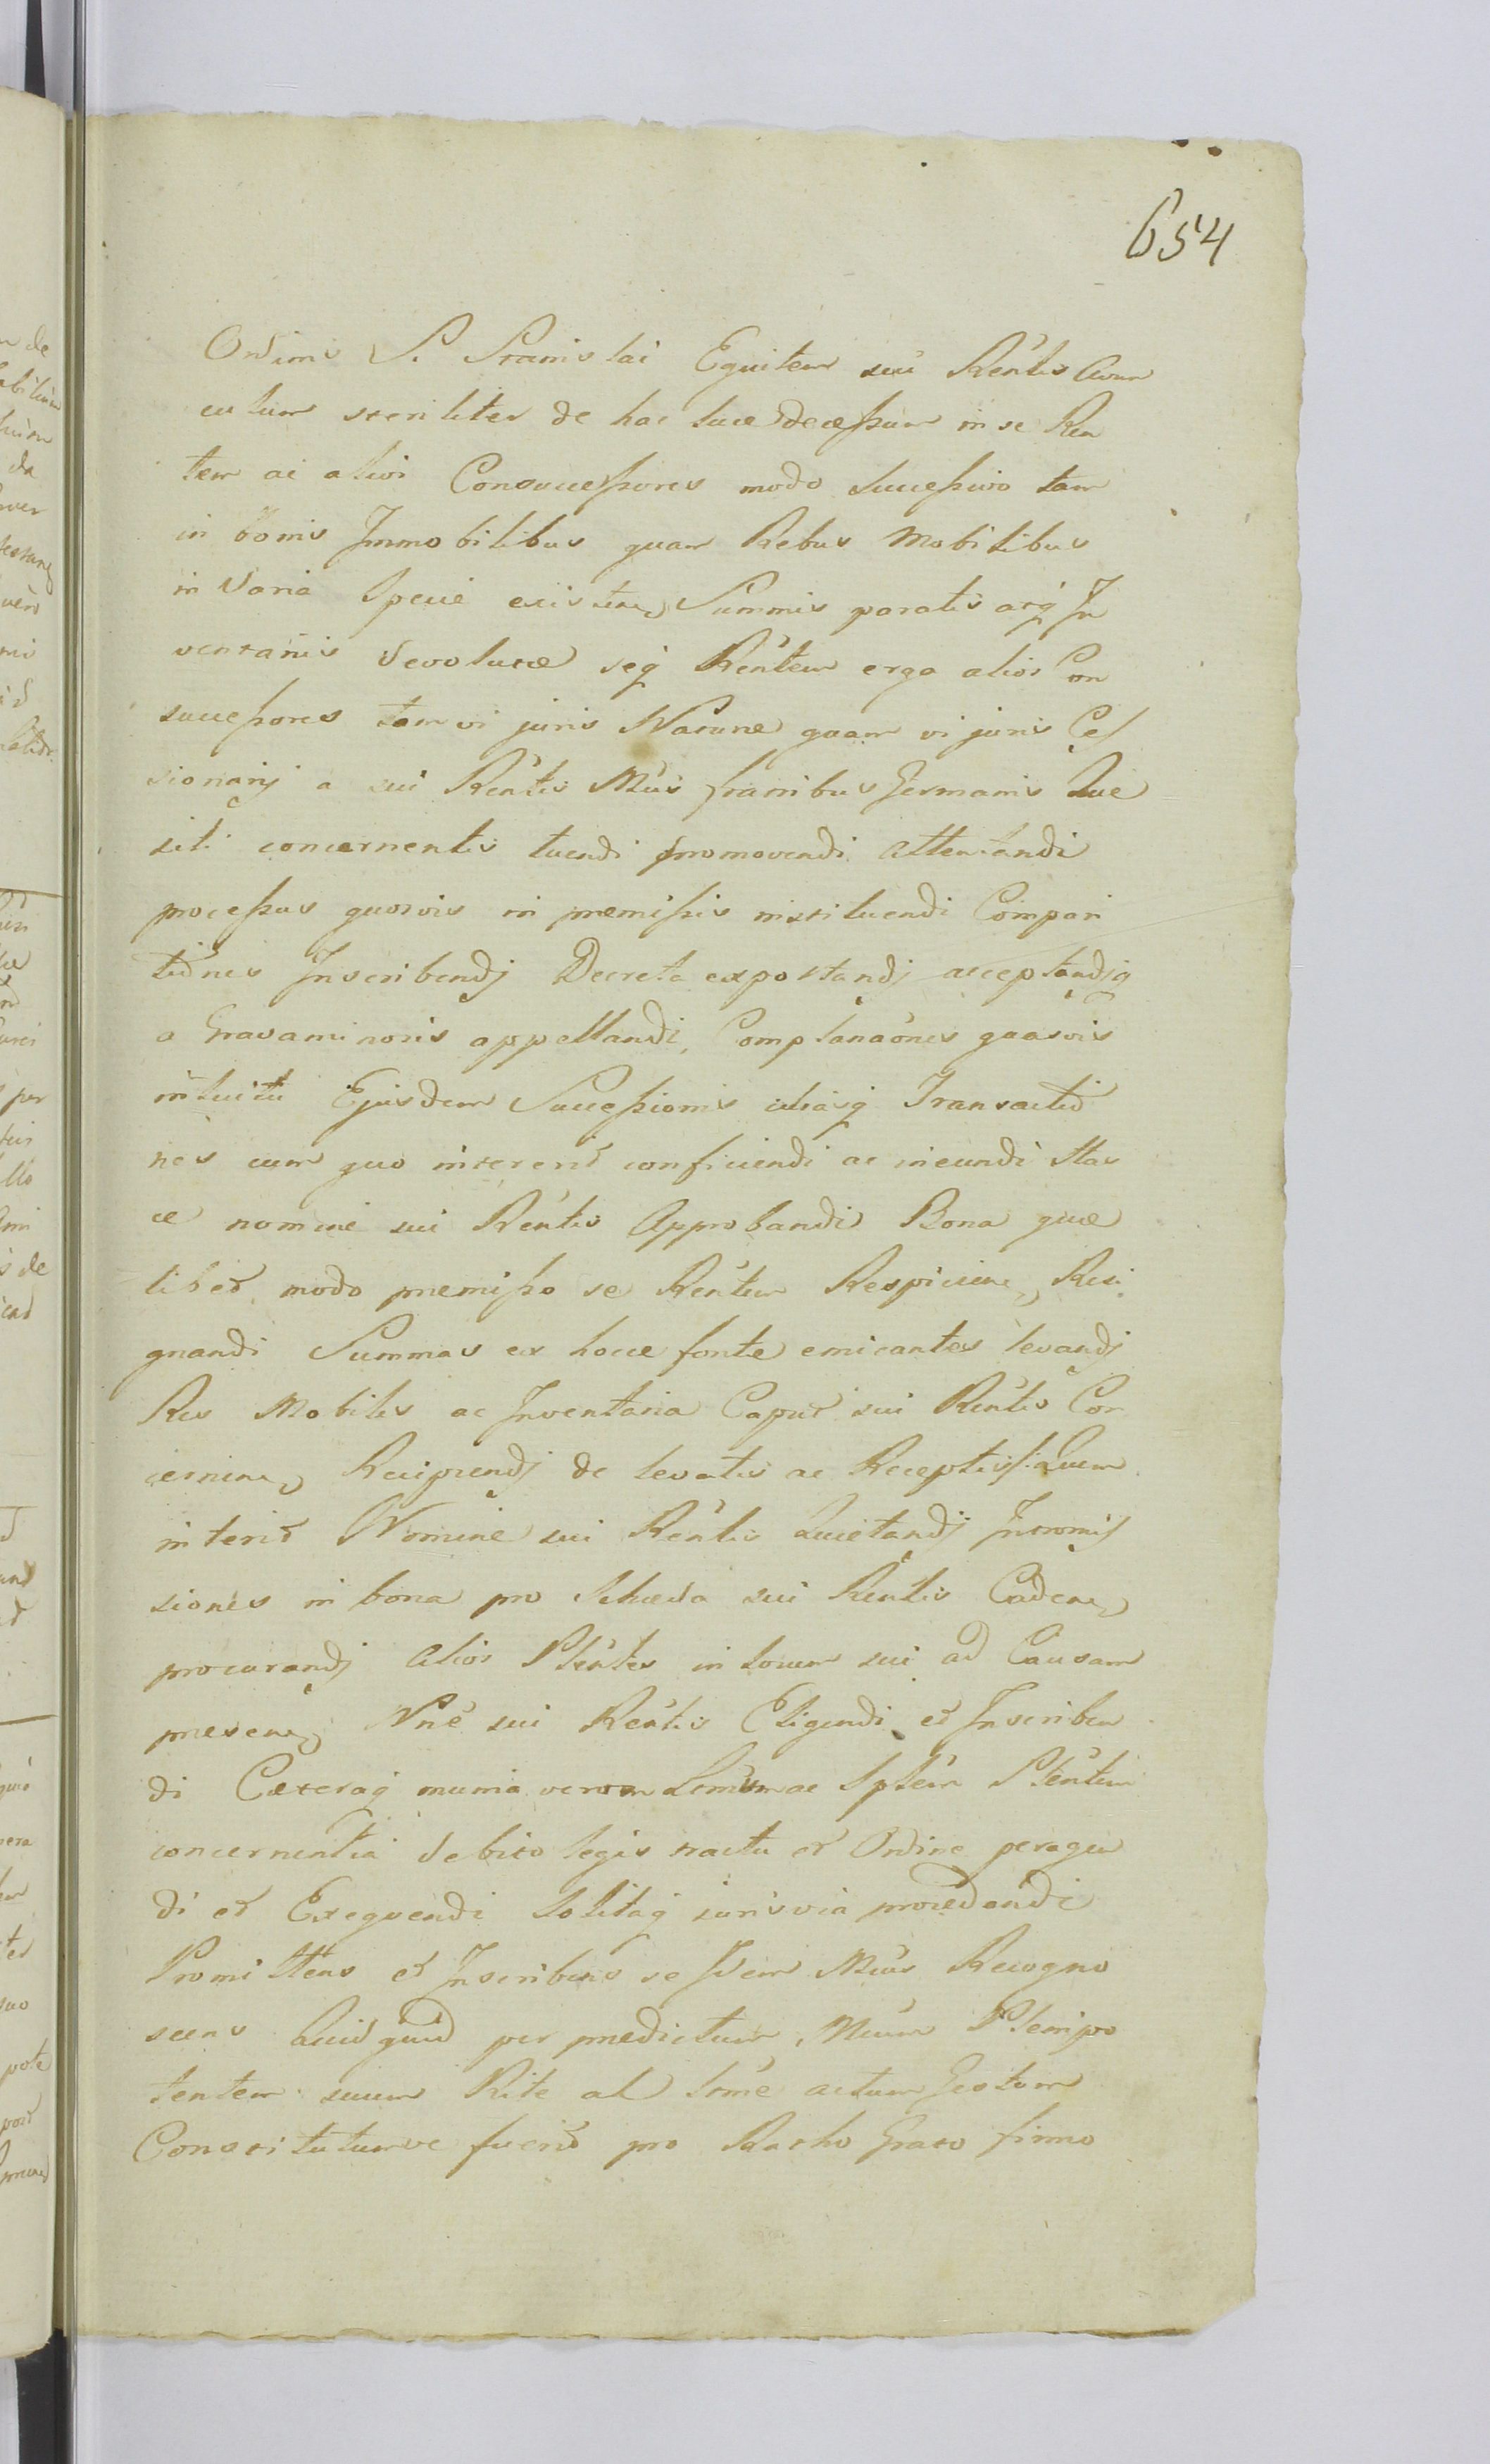 654
Ordinis S. Stanislai Equitem sui Rentis Avun
culum steriliter de hac luce decessum in se Ren
tem ac alios Consuccessores modo Successivo tam
in bonis Immobilibus quam Rebus Mobilibus
in Varia Specie existen Summis paratis atq In
ventariis devolutæ seq Rentem erga alios Con
successores tam vi juris Naturæ quam vi juris Ces
sionarij a sui Rentis Mcis fratribus Germanis Que
siti concernentis tuendi promovendi Attentandi
processus quosvis in premissis instituendi Compari
tiones Inscribendj Decreta exportandj acceptandjq
a Gravaminoris appellandi, Complanaones quasvis
intuitu Ejusdem Successionis aliasq Transactio
nes cum quo intererit conficiendi ac ineundi Itas
ce nomine sui Rentis Approbandi Bona quæ
libet modo premisso se Rentem Respicien Resi
gnandi Summas ex hocce fonte emicantes levandj
Res Mobiles ac Inventaria Caput sui Rentis Con
cernen Recipiendj de levatis ac Receptis Quem
interit Nomine sui Rentis Quietandj Intromis
siones in bona pro Scheda sui Rentis Caden
procurandj Alios Plentes in locum sui ad Causam
presen Nne sui Rentis Eligendi et Inscriben
di Cæteraq munia verum Lmum ac Splem Plentem
concernentia debito legis tractu et Ordine peragen
di et Exequendi Solitaq juris via procedendi
Promittens et Inscribens se Idem Mcus Recogno
scens Quidquid per predictum Mcum Plenipo
tentem suum Rite al Ltme actum Gestum
Constitutumve fuerit pro Ratho Grato firmo